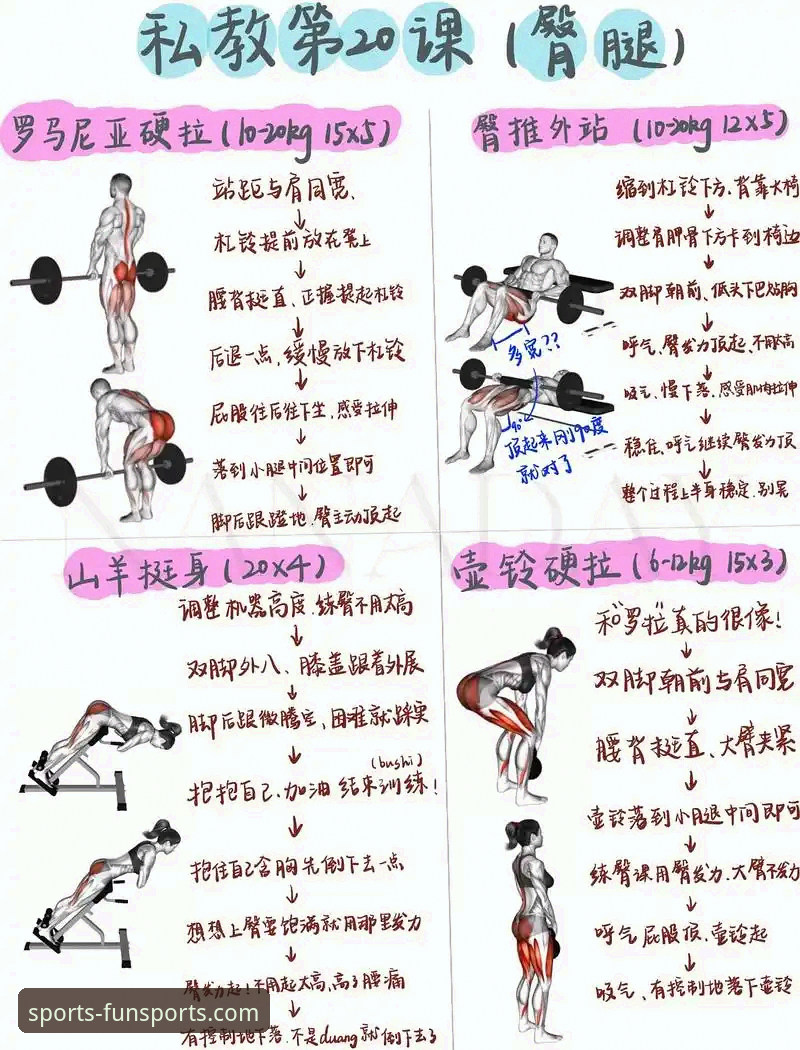 私教第20课（臀腿）
罗马尼亚硬拉（10-20kg 15x5）
站距与肩同宽、
杠铃提前放在凳上
腰背挺直、正握提起杠铃
后退一点，缓慢放下杠铃
屁股往后往下坐，感受拉伸
落到小腿中间位置即可
脚后跟蹬地、臀主动顶起
臀推外站（10-20kg 12x5）
缩到杠铃下方、背靠大椅
调整肩胛骨下方卡到椅边
双脚朝前、低头下巴贴胸
呼气、臀发力顶起、不用太高
吸气、慢下落、感受肌肉拉伸
稳住、呼气继续臀发力顶
整个过程上半身稳定、别晃
多宽??
90°
顶起来刚90度
就对了
山羊挺身（20x4）
调整机器高度、练臀不用太高
双脚外八、膝盖跟着外展
脚后跟微腾空、困难就踩实
(bushi)
抱抱自己、加油 结束训练!
抱住自己含胸先倒下去一点
想想上臀要饱满就用那里发力
臀发力起!不用起太高、高了腰痛
有控制地下落、不是duang就倒下去了
壶铃硬拉（6-12kg 15x3）
和"罗拉"真的很像!
双脚朝前与肩同宽
腰背挺直、大臂夹紧
壶铃落到小腿中间即可
练臀课用臀发力、大臂不发力
呼气屁股顶、壶铃起
吸气、有控制地落下壶铃
NANADAY
sports-funsports.com